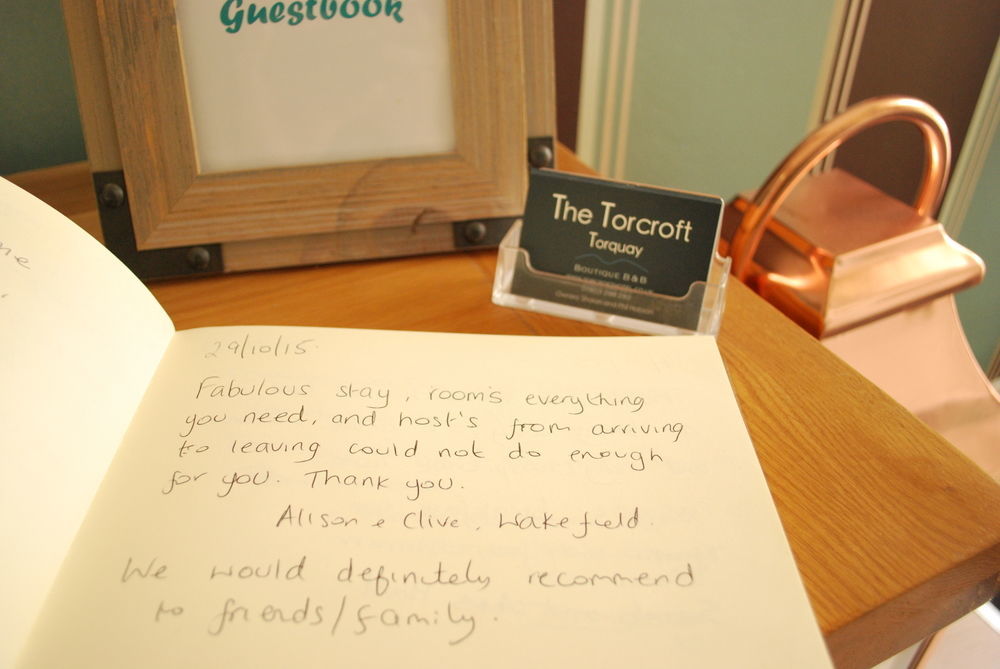 Guestbook
The Torcroft
Torquay
BOUTIQUE B&B
ne
29/10/15.
Fabulous stay, room's everything
you need, and host's from arriving
to leaving could not do enough
for you. Thank you.
Alison & Clive, Wakefield.
We would definitely recommend
to friends/family.